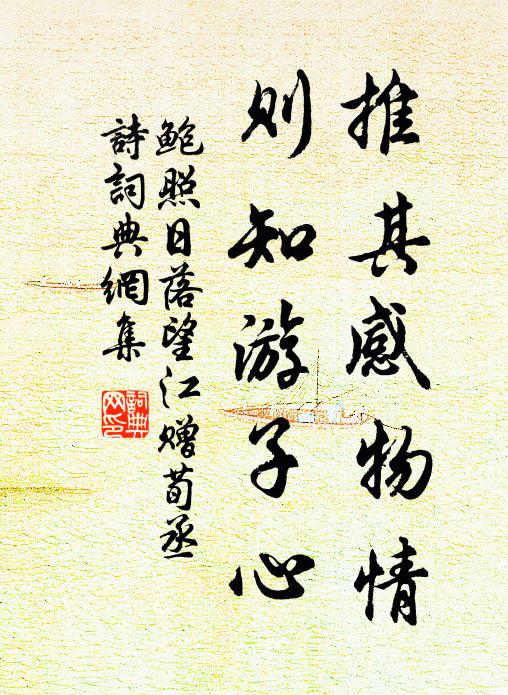 推其感物情
則知游子心
鮑照日落望江贈荀丞
詩詞典網集
詞典網印